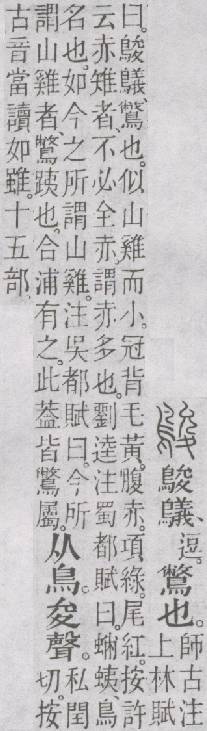 鵔鵔鸃、逗。鷩也。師古注
上林賦
曰。鵔鸃、鷩也。似山雞而小。冠背毛黃。腹赤。項綠。尾紅。按許
云赤雉者、不必全赤。謂赤多也。劉逵注蜀都賦曰。蜵蛦鳥
名也。如今之所謂山雞。注吳都賦曰。今所
謂山雞者、鷩蛦也。合浦有之。此葢皆鷩屬。
从鳥。夋聲。私閏
切。按
古音當讀如雖。十五部。